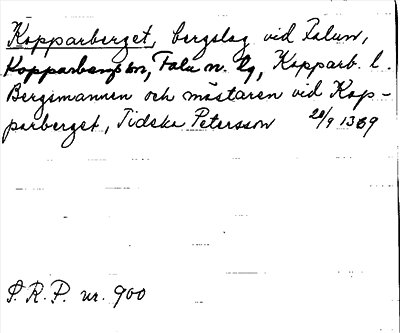 Kopparberget, bergslag vid Falun,
Kopparbergs sn, Falu n. lg, Kopparb. l.
Bergsmannen och mästaren vid Kop-
parberget, Tidske Petersson 20/9 1389
S.R.P. nr. 900